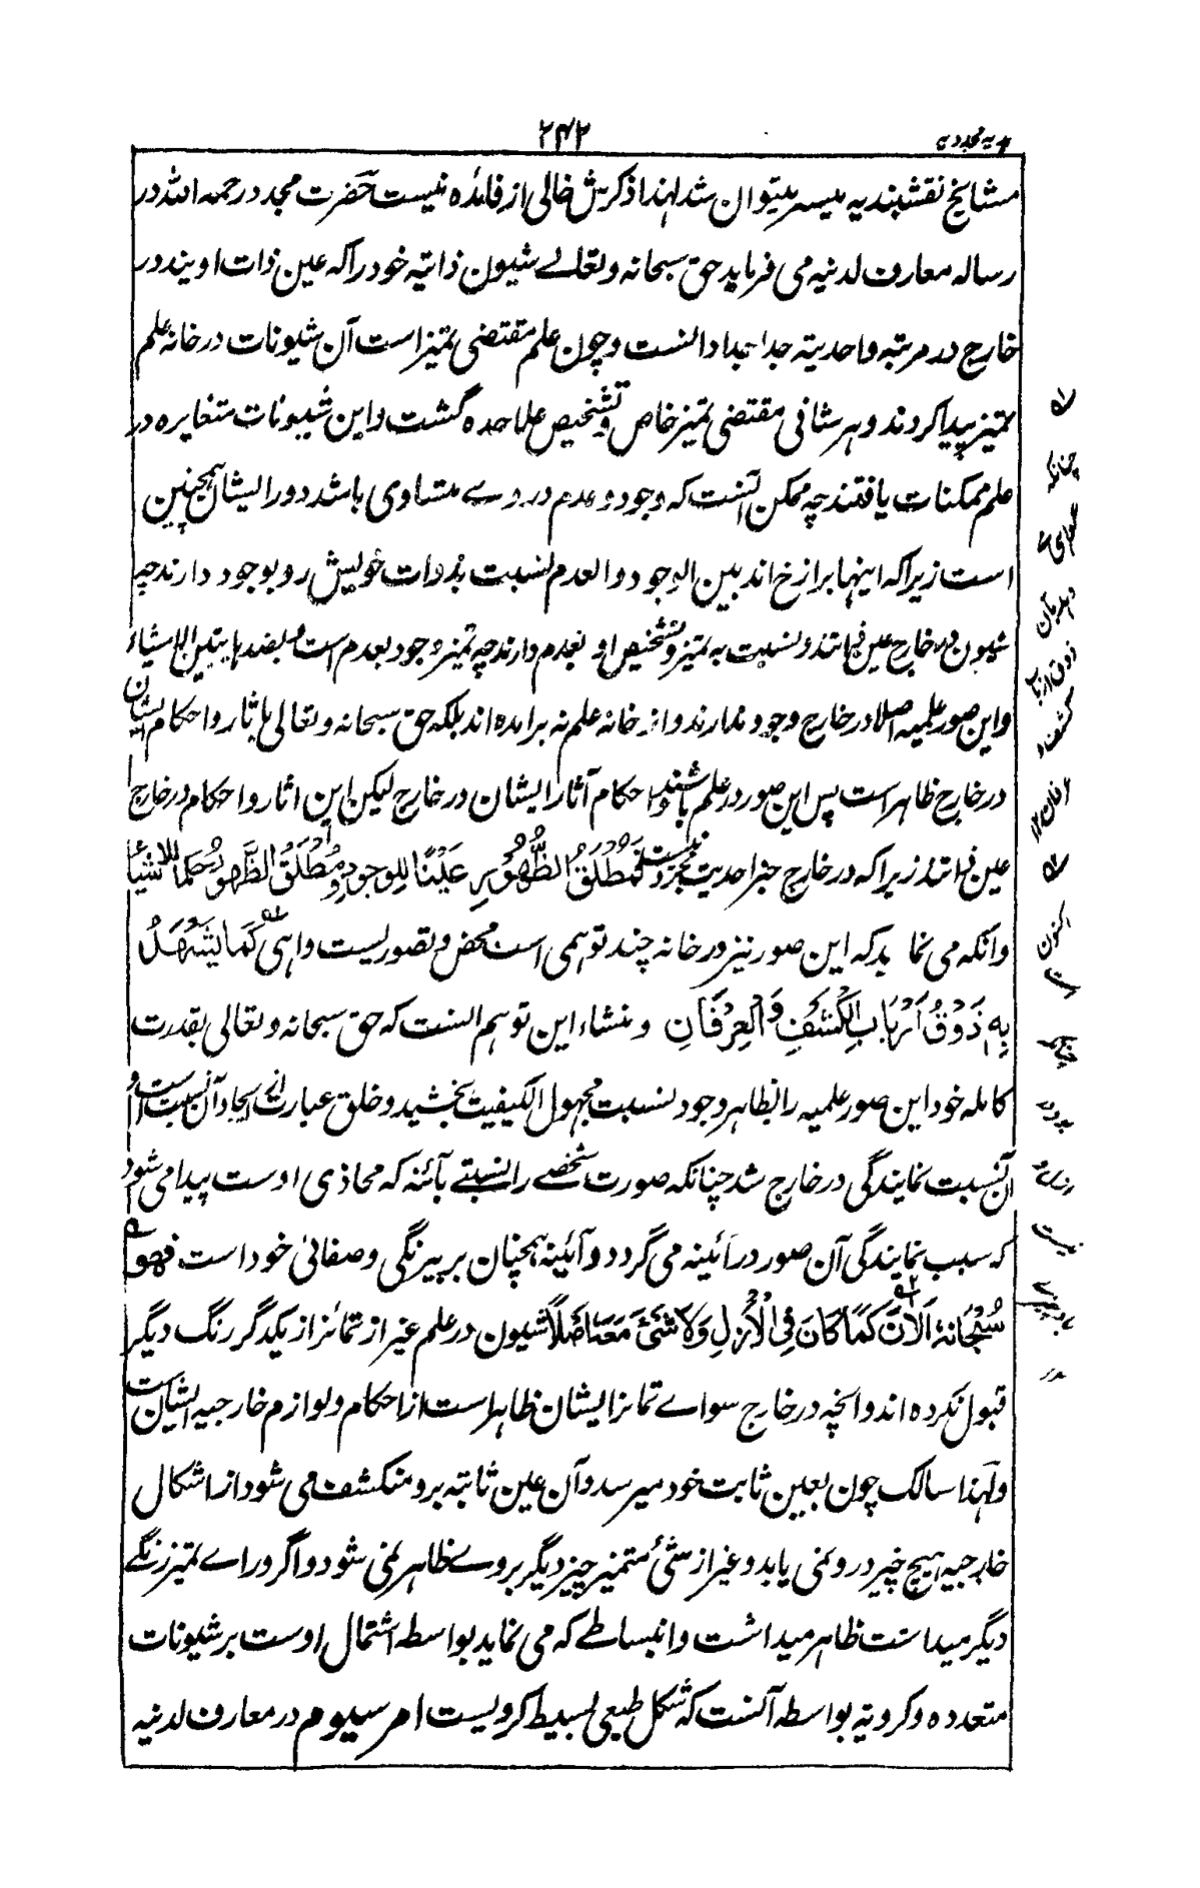 ۲۴۲
مشایخ نقشبندیه میسر میتوان شد لهذا ذکرش خالی از فائده نیست حضرت مجدد رحمه الله در
رساله معارف لدنیه می فرماید حق سبحانه وتعالے شیون ذاتیه خود را که عین ذات اویند در
خارج در مرتبه واحدیته جدا جدا دانست وچون علم مقتضی تمیز است آن شیونات در خانه علم
تمیز پیدا کردند وهر شانی مقتضی تمیز خاص وتشخیص علاحده گشت واین شیونات متغایره در
علم ممکنات یافتند چه ممکن آنست که وجود وعدم در وے متساوی باشد دورا ایشان همچنین
است زیرا که اینها برازخ اند بین الوجود والعدم نسبت بذوات خویش رو بوجود دارند چه
شیون در خارج عین ذاتند ونسبت به تمیز وتشخیص او بعدم دارند چه تمیز وجود بعدم است وبضدها یتبین الاشیاء
واین صور علمیه اصلا در خارج وجود ندارند واز خانه علم نه برآمده اند بلکه حق سبحانه وتعالی باثار واحکام ایشان
در خارج ظاهر است پس این صور در علم باشند واحکام آثار ایشان در خارج لیکن این اثار واحکام در خارج
عین ذاتند زیرا که در خارج جز احدیت مجرده نیست فَمُطْلَقُ الظُّهُوْرِ عَیْنًا لِلوجود ومُطْلَقُ الظُّهورِ حُکمًا للاشیاء
وانکه می نماید که این صور نیز در خانه چند توهمی است محض وتصوریست واهی کَمَا یَشْهَدُ
بِهٖ ذَوْقُ اَرْبَابِ الکَشْفِ وَالْعِرْفَانِ ومنشاء این توهم آنست که حق سبحانه وتعالی بقدرت
کامله خود این صور علمیه را بظاهر وجود نسبت مجهول الکیفیت بخشید وخلق عبارت از ایجاد آن نسبت است و
آن نسبت نمایندگی در خارج شد چنانکه صورت شخصے را نسبتے بآئنه که محاذی اوست پیدا می شود
که سبب نمایندگی آن صور در آئینه می گردد وآئینه همچنان بر بیرنگی وصفائی خود است فهو
سُبْحَانَهٗ اَلْاٰنَ کَمَا کَانَ فِی الْاَزَلِ وَلَا شَیْءَ مَعَهٗ اَصْلًا شیون در علم غیر از تمائز از یکدگر رنگ دیگر
قبول نکرده اند وانچه در خارج سواے تمائز ایشان ظاهر است از احکام ولوازم خارجیه ایشان است
ولهذا سالک چون بعین ثابت خود میرسد وآن عین ثابته برو منکشف می شود از اشکال
خارجیه هیچ چیز در و نمی یابد وغیر از شئ متمیز چیز دیگر بروے ظاهر نمی شود واگر وراے تمیز رنگے
دیگر میداشت ظاهر میداشت وانبساطے که می نماید بواسطه اشتمال اوست بر شیونات
متعدده وکرویته بواسطه آنست که شکل طبعی بسیط کرویست امر سیوم در معارف لدنیه
چنانکه
گواهی
ذوق ارباب
کشف و
عرفان ۱۲
اکنون
است
چنانچه
بود در
نیست